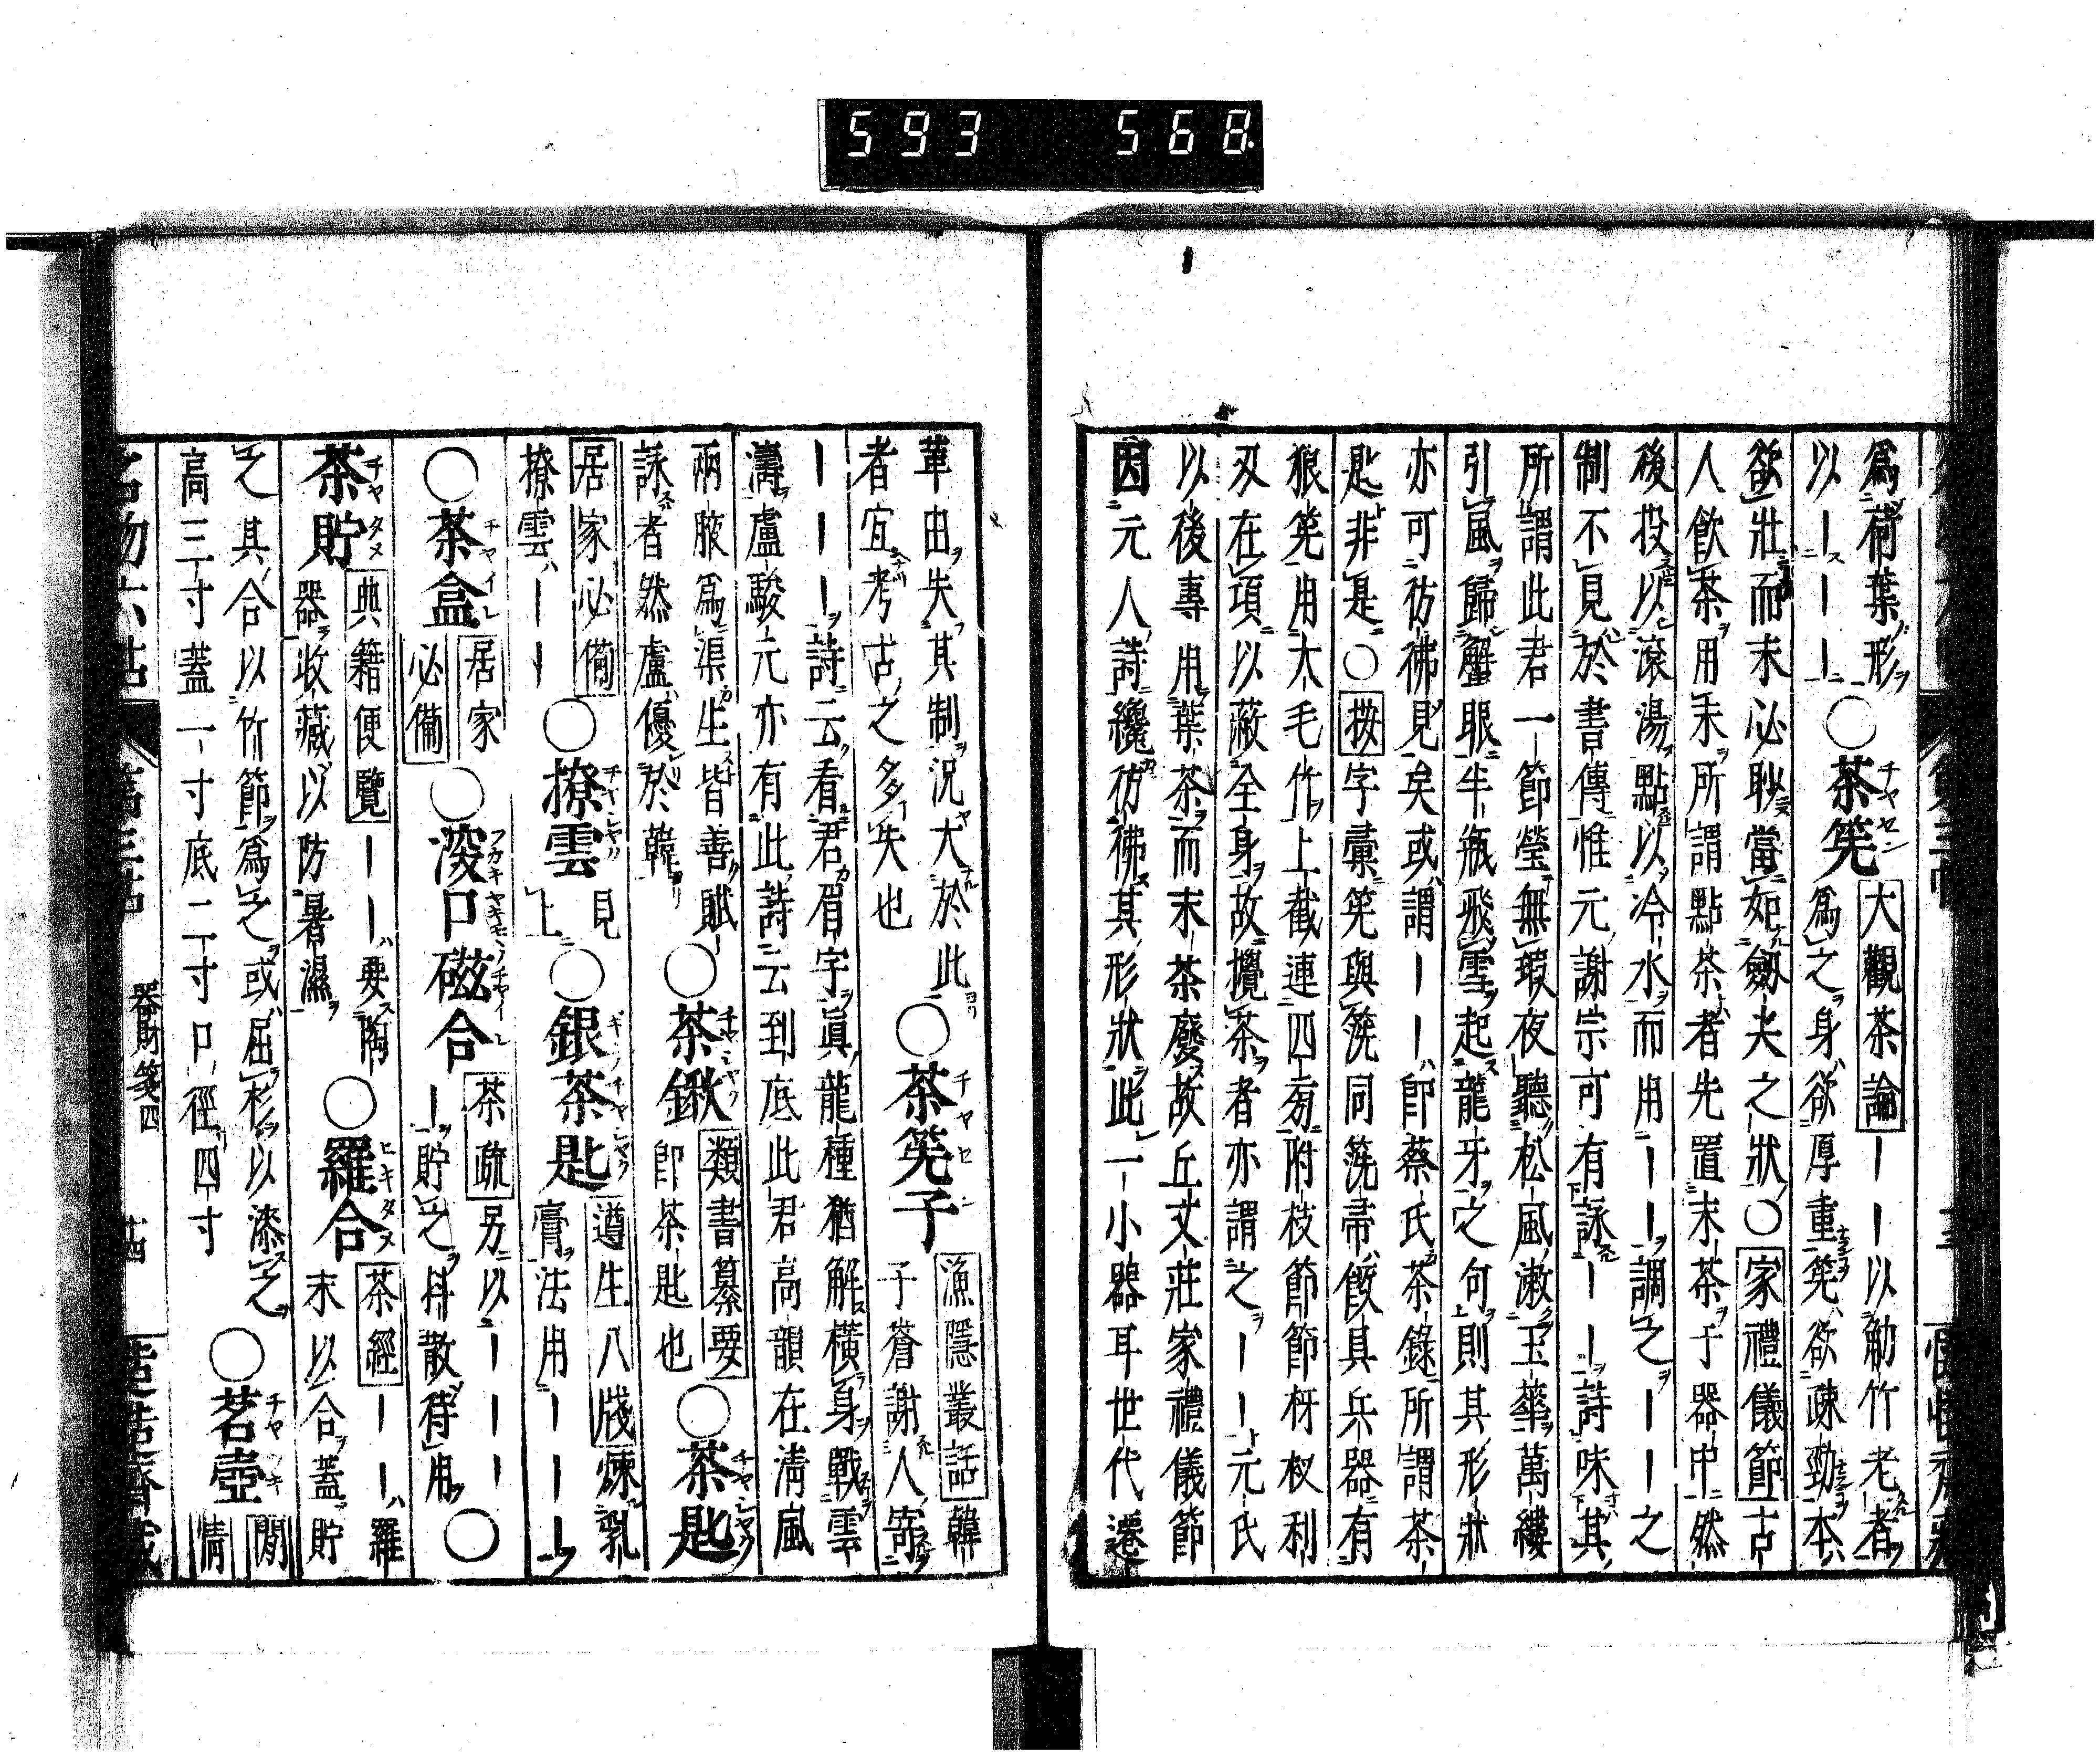 593 568
爲荷葉形
以｜｜｜○茶筅 チヤセン 大觀茶論｜｜以觔竹老者
爲之身欲厚重筅欲疎勁本
欲壯而末必眇當如劔夫之狀○家禮儀節古
人飮茶用末所謂點茶者先置末茶于器中然
後投以滾湯點以冷水而用｜｜調之｜｜之
制不見於書傳惟元謝宗可有詠｜｜詩味其
所謂此君一節瑩無瑕夜聽松風漱玉華萬縷
引風歸蟹眼半瓶飛雪起龍牙之句則其形狀
亦可彷彿見矣或謂｜｜卽蔡氏茶錄所謂茶
匙非是○按字彙筅與箲同箲帚飯具兵器有
狼筅用大毛竹上截連四旁附枝節節枒杈利
刄在項以蔽全身故攪茶者亦謂之｜｜元氏
以後專用葉茶而末茶廢故丘文莊家禮儀節
因元人詩纔彷彿其形狀此一小器耳世代遷
革由失其制況大於此
者宜考古之多失也
○茶筅子 チヤセン 漁隱叢話韓
子蒼謝人寄
｜｜｜詩云看君眉宇眞龍種猶解橫身戰雲
濤盧駿元亦有此詩云到底此君高韻在淸風
兩腋爲渠生皆善賦
詠者然盧優於韓
○茶鍬 チヤシヤク 類書纂要
卽茶匙也
○茶匙 チヤシヤク
居家必備
撩雲｜｜
○撩雲 チヤシヤク 見上
○銀茶匙 ギンノチヤシヤク 遵生八牋煉乳
膏法用｜｜｜
○茶盒 チヤイレ 居家
必備
○深口磁合 フカキヤキモノチヤイレ 茶疏另以｜｜｜
｜貯之抖散待用
○
茶貯 チヤタメ 典籍便覽｜｜要陶
器收藏以防暑濕
○羅合 ヒキタメ 茶經｜｜羅
末以合蓋貯
之其合以竹節爲之或屈杉以漆之
高三寸蓋一寸底二寸口徑四寸
○茗壺 チヤツキ 閒
情
器財箋四